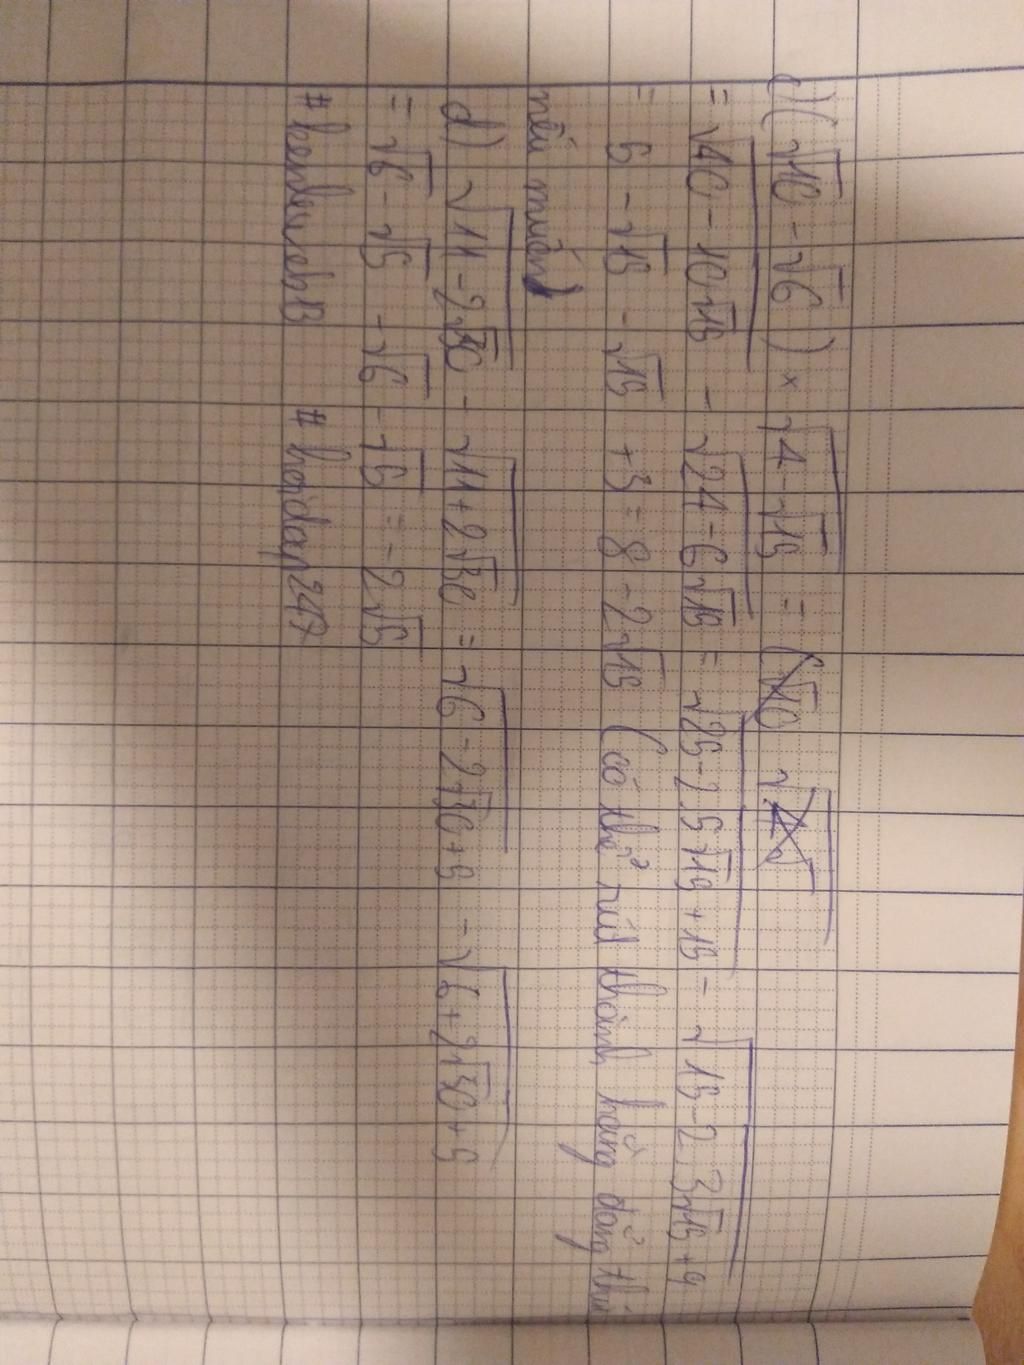 c) (√10 - √6) × √4-√15 = (√10 √4
= √40-10√15 - √24-6√15 = √25-2.5√15+15 - √15-2.3√15+9
= 5 - √15 - √15 + 3 = 8 - 2√15 (có thể rút thành hằng đẳng thứ
nếu muốn)
d) √11-2√30 - √11+2√30 = √6-2√30+5 - √6+2√30+5
= √6 - √5 - √6 - √5 = -2√5
#hoidap247